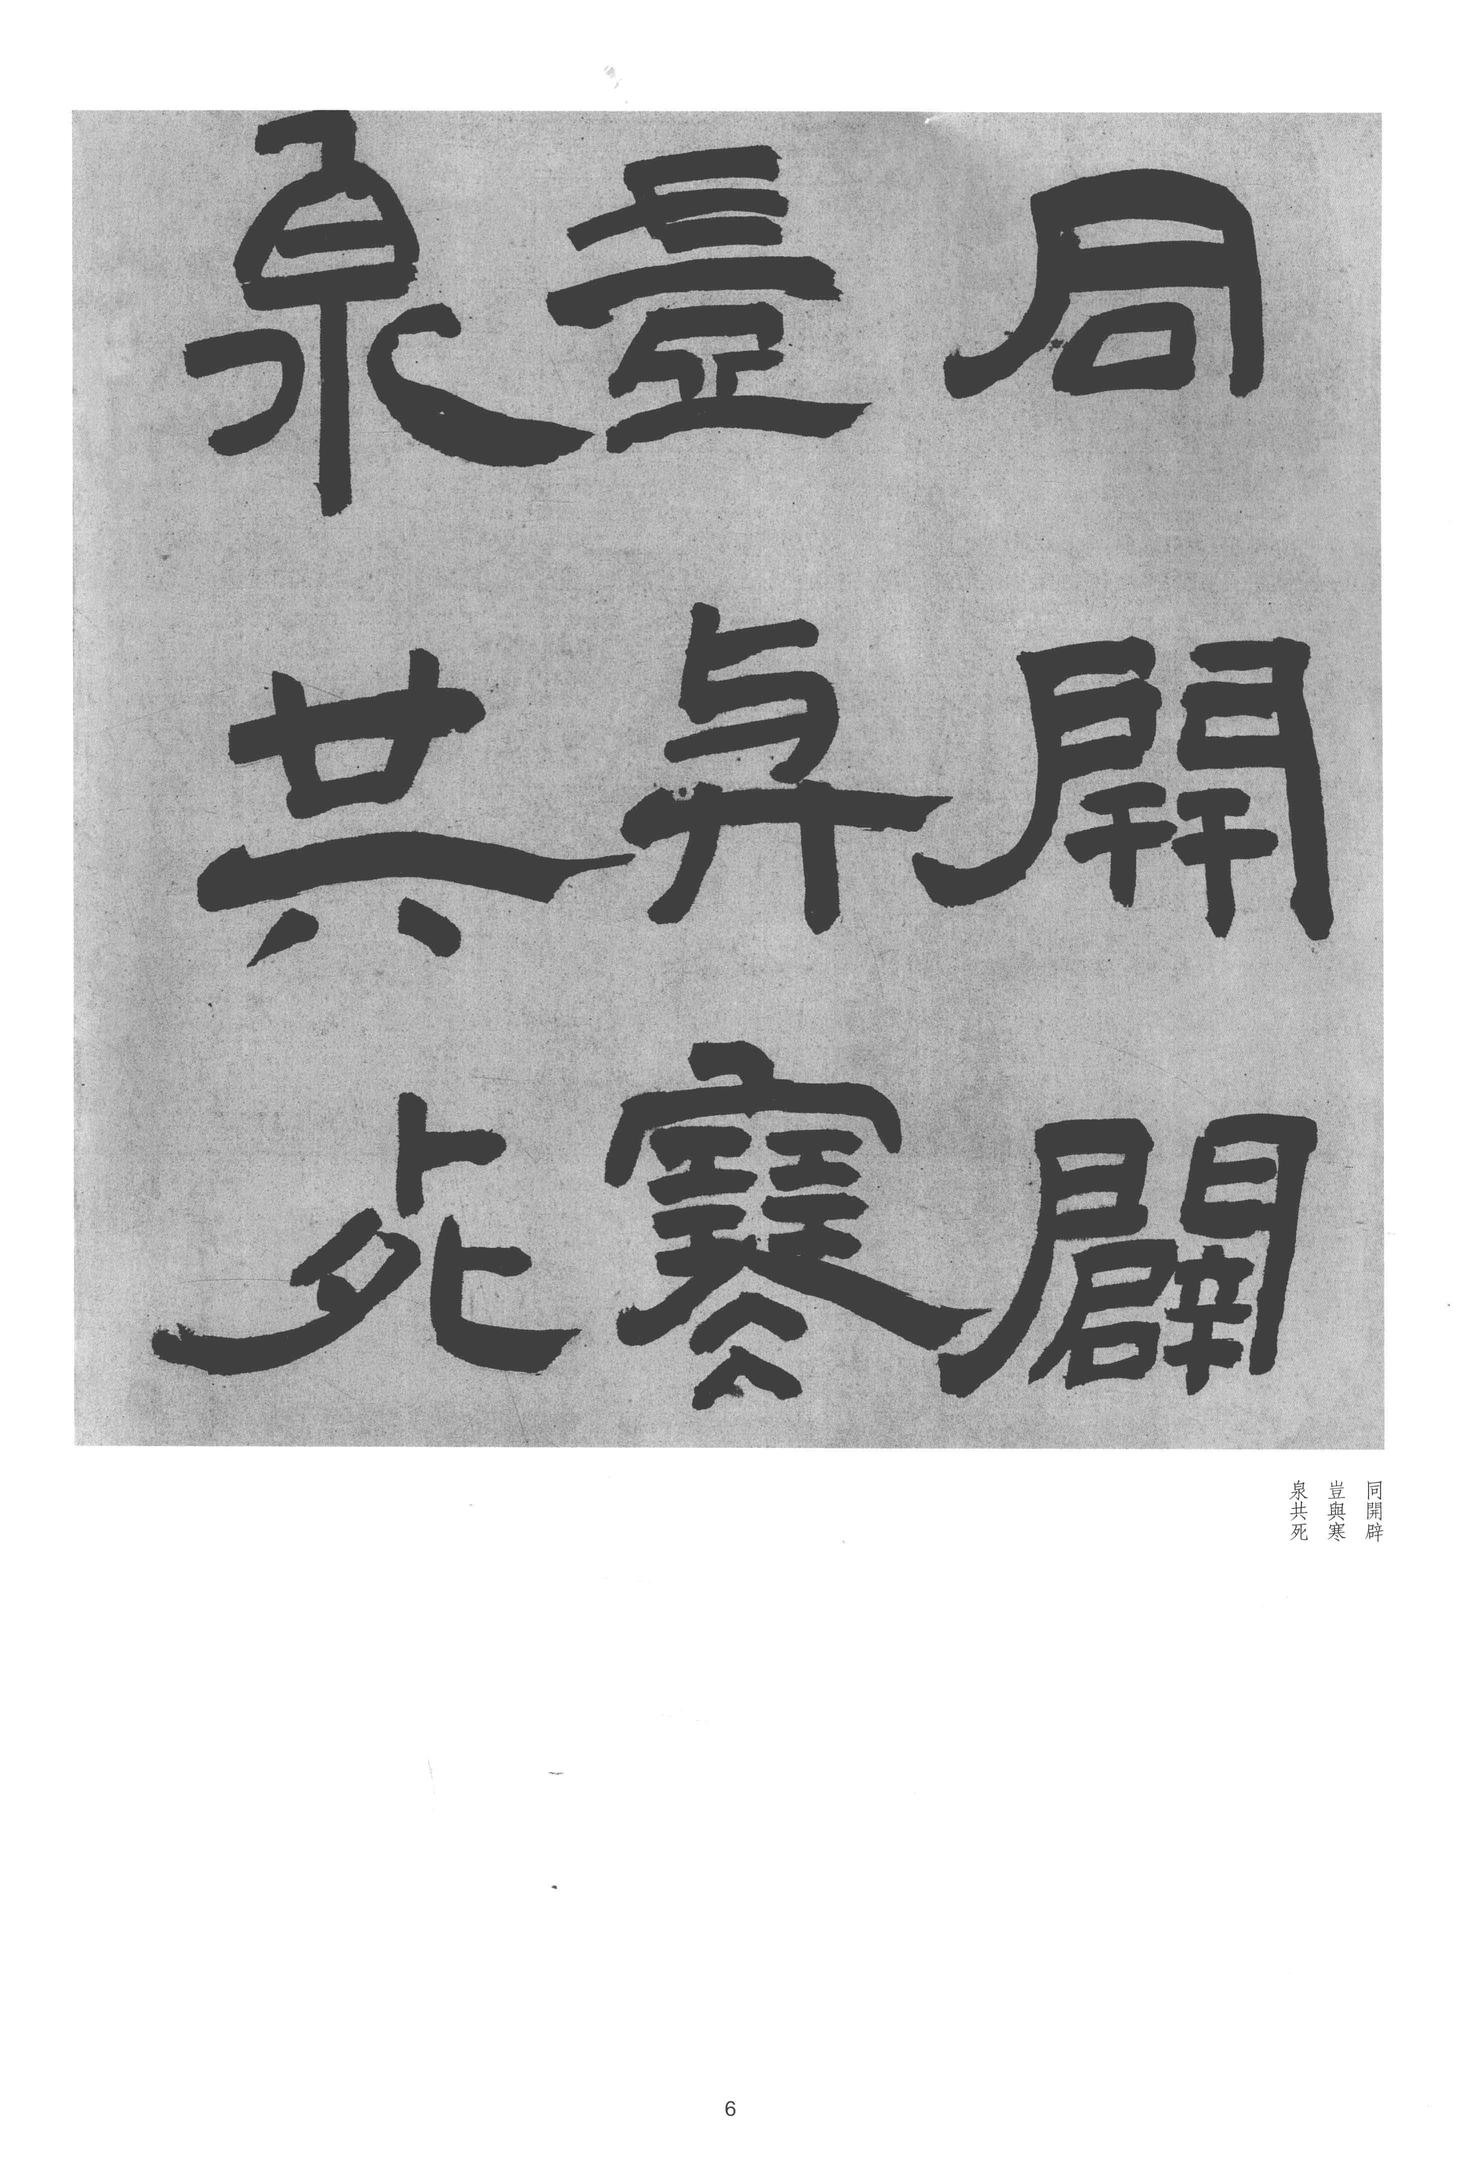 同開闢
豈与寒
泉共死
同開辟
豈與寒
泉共死
6